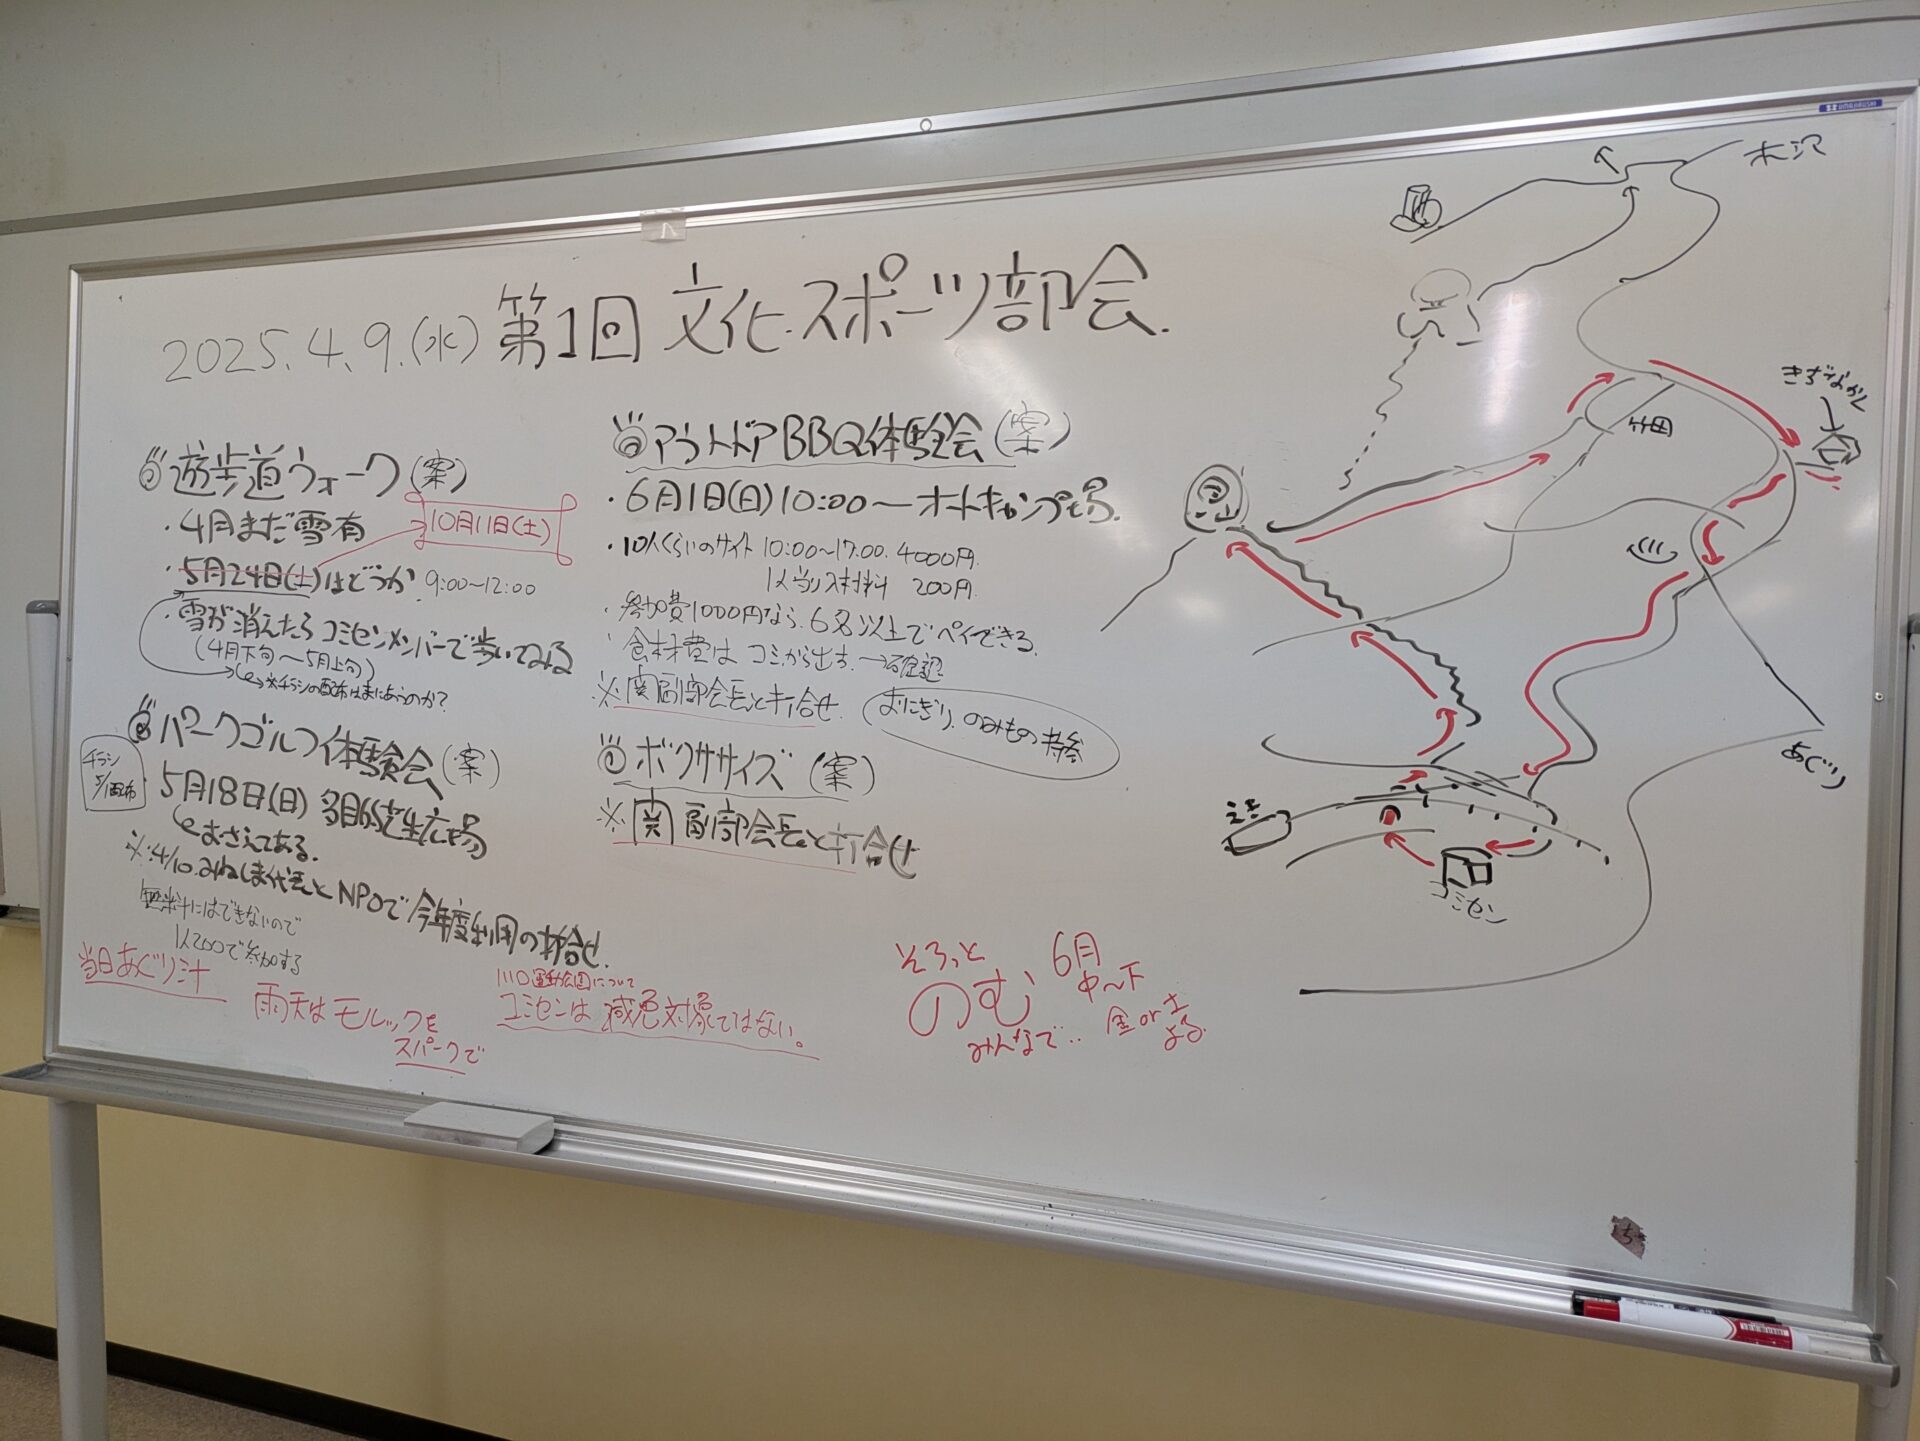 2025.4.9.(水) 第1回 文化.スポーツ部会.
遊歩道ウォーク(案)
・4月まだ雪有
10月11日(土)
・5月24日(土)はどうか 9:00〜12:00
・雪が消えたらコミセンメンバーで歩いてみる
(4月下旬〜5月上旬)
※チラシの配布はまにあうのか?
パークゴルフ体験会(案)
チラシ
5/1配布
5月18日(日) 多目的芝生広場
おさえてある.
※4/10.みねしま代表とNPOで今年度利用の打合せ.
無料にはできないので
1人200で参加する
当日あぐり汁
雨天はモルックを
スパークで
アウトドアBBQ体験会(案)
・6月1日(日)10:00〜オートキャンプ場.
・10人くらいのサイト 10:00〜17:00. 4000円.
1人当り材料 200円.
・参加費1000円なら、6名以上でペイできる.
・食材費は コミから出す.→確認
※関副部会長と打合せ.
おにぎり.のみもの持参
ボクササイズ(案)
※関副部会長と打合せ
運動公園について
コミセンは 減免対象ではない。
そろっと
のむ
みんなで..
6月
中〜下
金or土
よる.
木沢
きずなかん
竹田
あぐり
コミセン